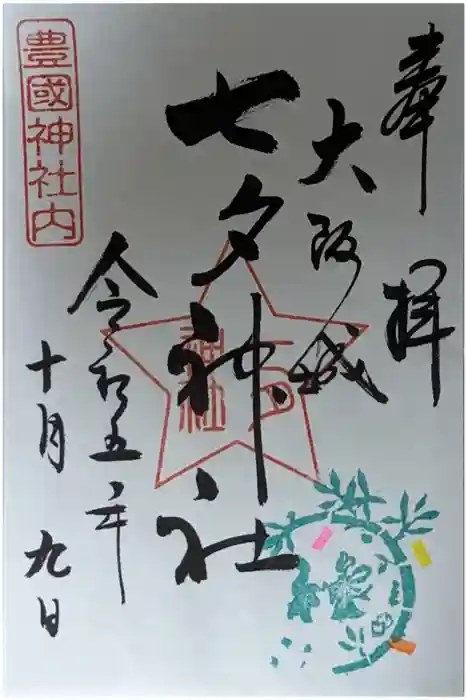 奉拝
大阪城
七夕神社
令和五年
十月九日
豊國神社内
七夕
神社